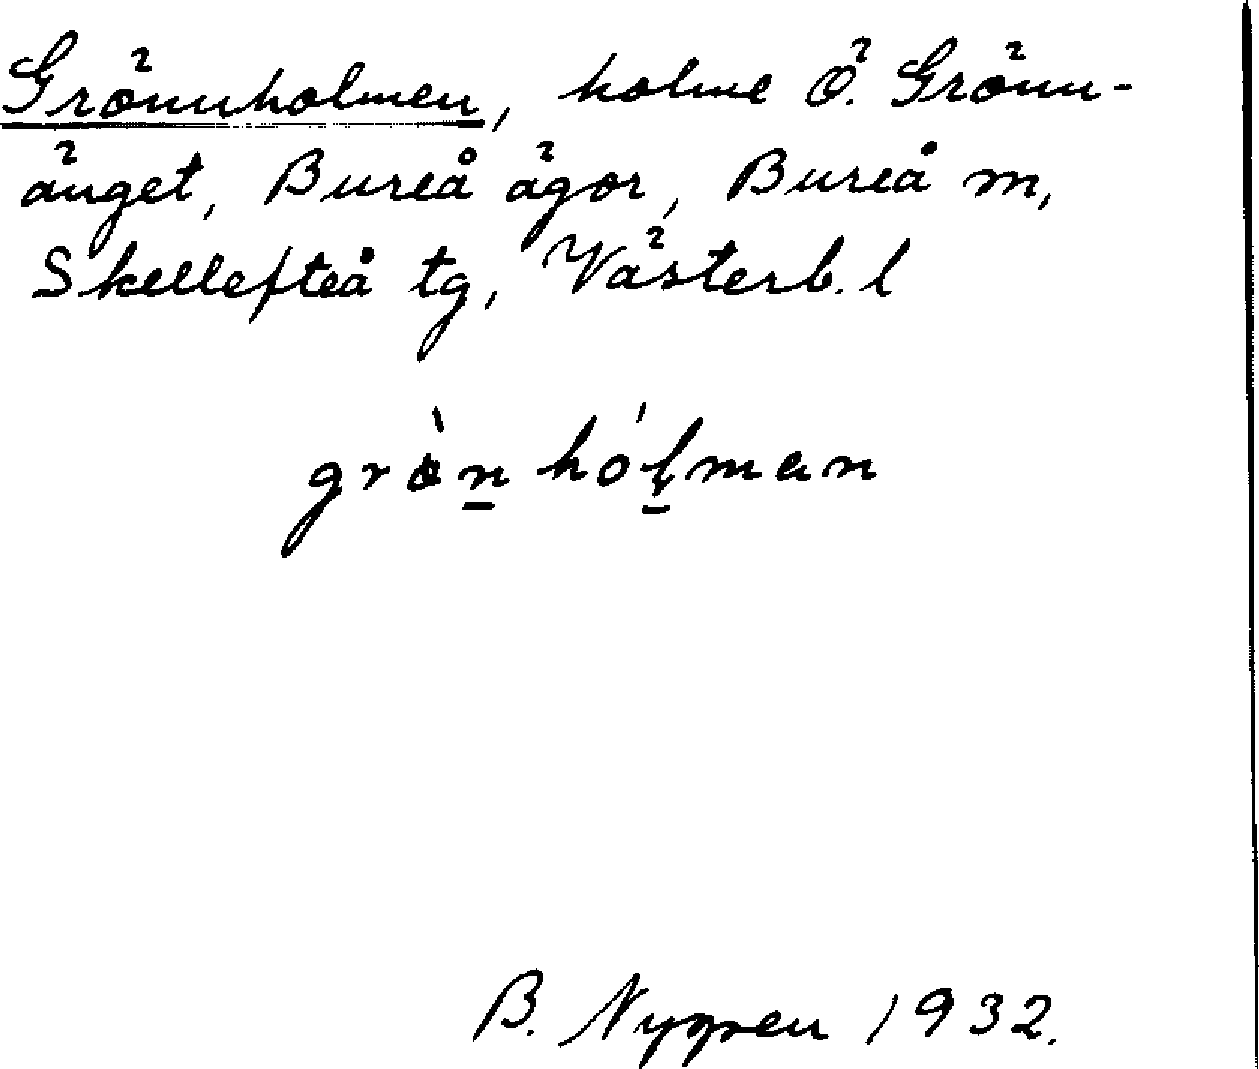 Grönnholmen, holme Ö. Grönn-
änget, Bureå ägor, Bureå m,
Skellefteå tg, Västerb. l
grò̀n hóḷman
B. Nygren 1932.